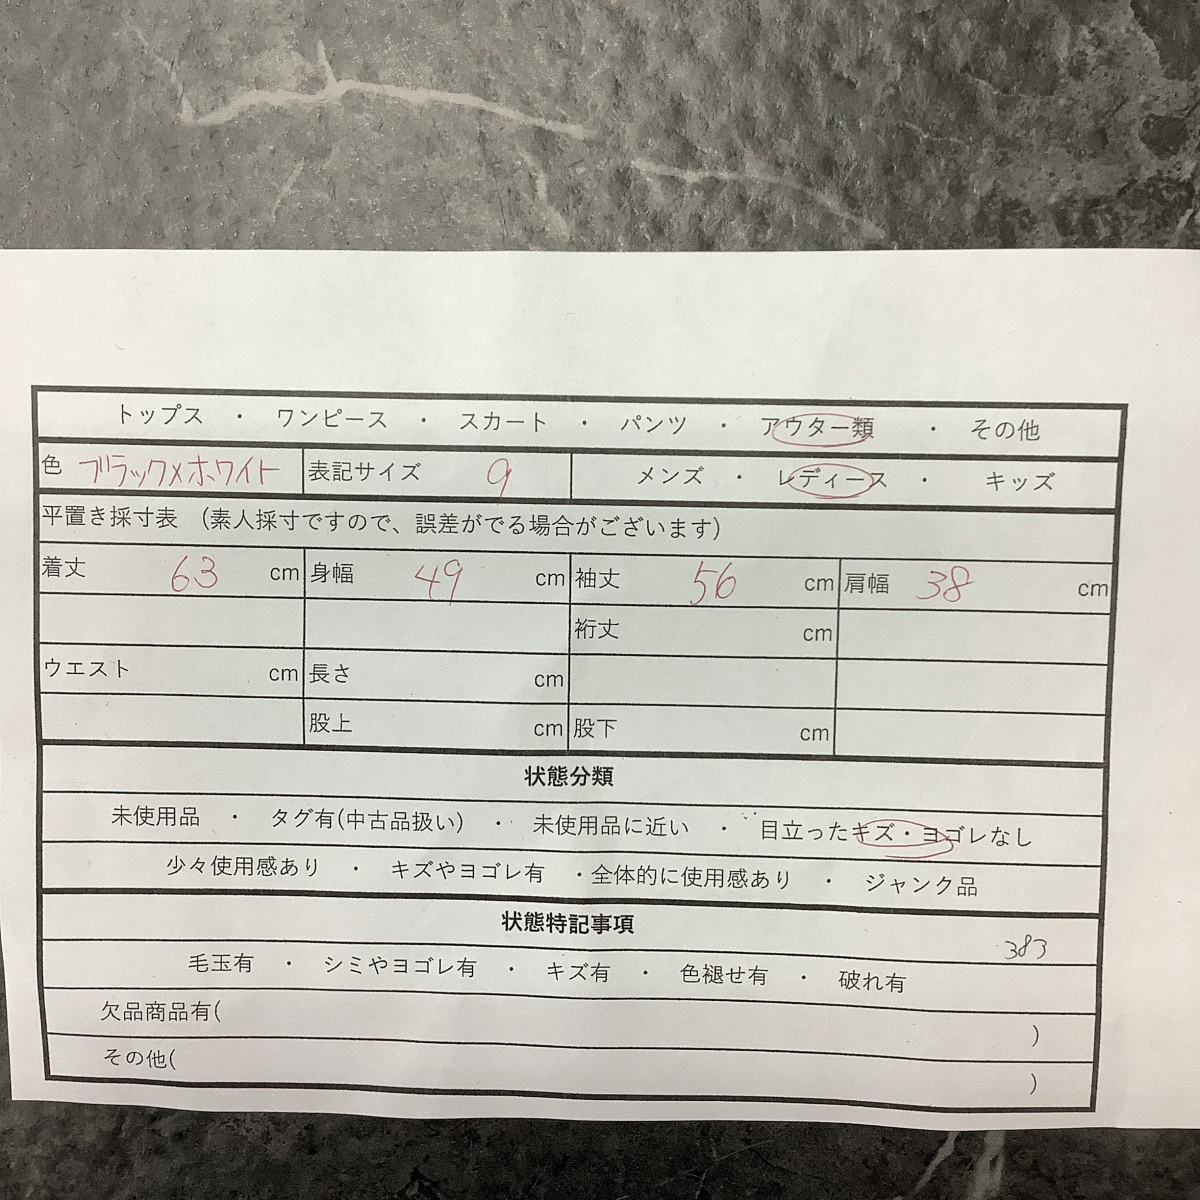 トップス ・ ワンピース ・ スカート ・ パンツ ・ アウター類 ・ その他
色 ブラック×ホワイト 表記サイズ 9 メンズ ・ レディース ・ キッズ
平置き採寸表 （素人採寸ですので、誤差がでる場合がございます）
着丈 63 cm 身幅 49 cm 袖丈 56 cm 肩幅 38 cm
裄丈 cm
ウエスト cm 長さ cm
股上 cm 股下 cm
状態分類
未使用品 ・ タグ有(中古品扱い) ・ 未使用品に近い ・ 目立ったキズ・ヨゴレなし
少々使用感あり ・ キズやヨゴレ有 ・全体的に使用感あり ・ ジャンク品
状態特記事項
383
毛玉有 ・ シミやヨゴレ有 ・ キズ有 ・ 色褪せ有 ・ 破れ有
欠品商品有( )
その他( )